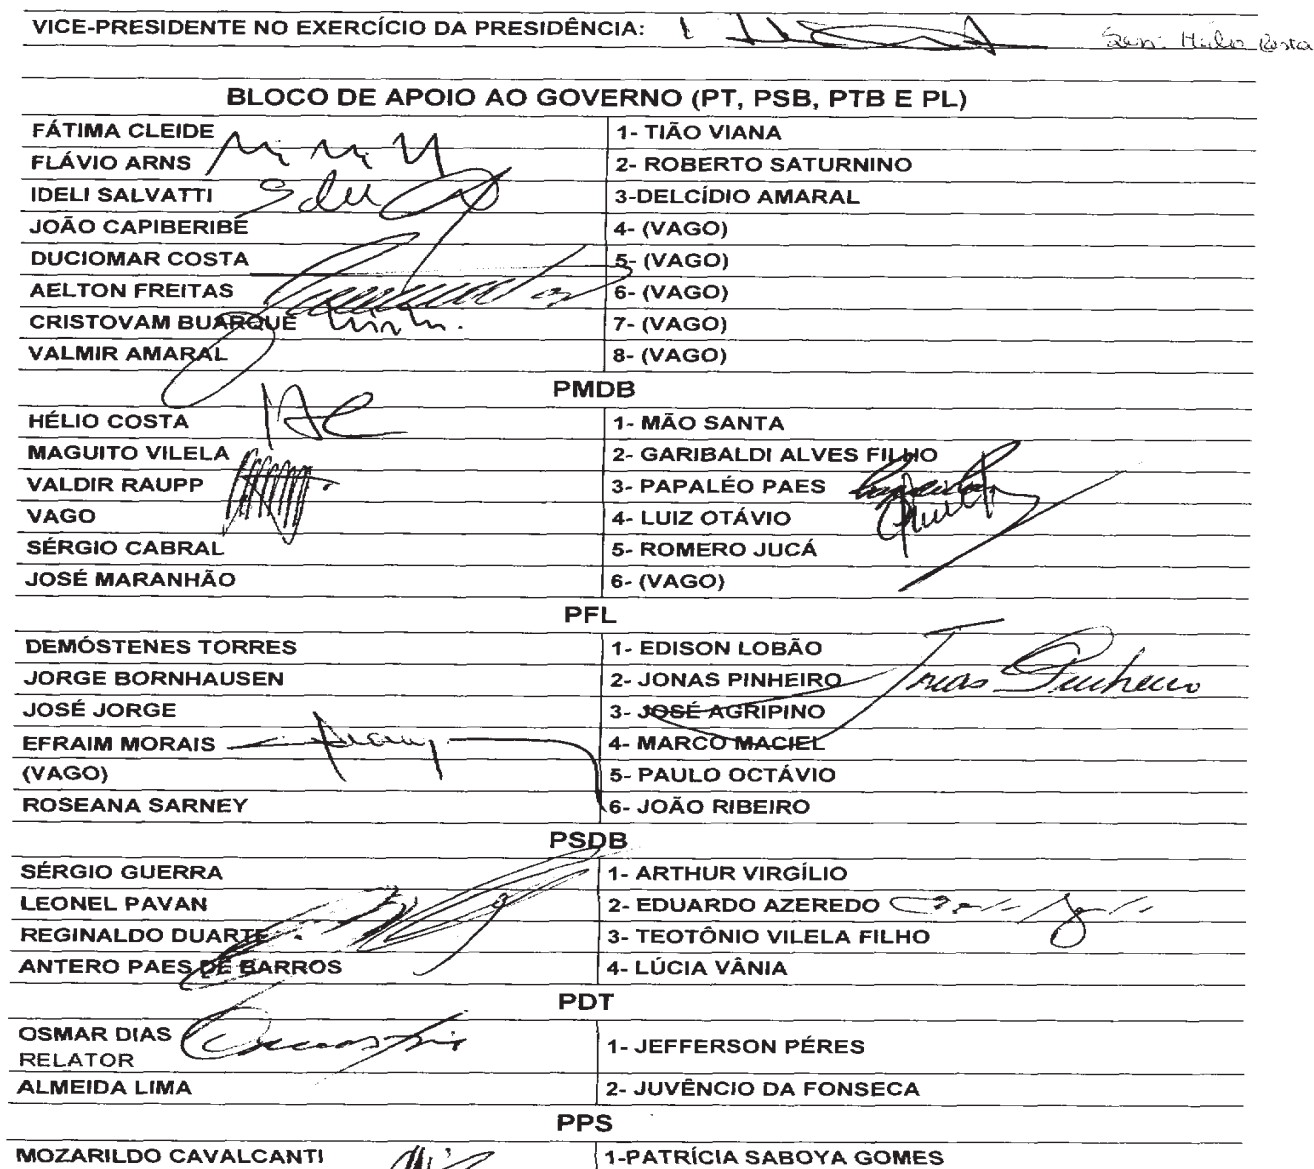 VICE-PRESIDENTE NO EXERCÍCIO DA PRESIDÊNCIA: Sen. Hélio Costa
BLOCO DE APOIO AO GOVERNO (PT, PSB, PTB E PL)
FÁTIMA CLEIDE 1- TIÃO VIANA
FLÁVIO ARNS 2- ROBERTO SATURNINO
IDELI SALVATTI 3-DELCÍDIO AMARAL
JOÃO CAPIBERIBE 4- (VAGO)
DUCIOMAR COSTA 5- (VAGO)
AELTON FREITAS 6- (VAGO)
CRISTOVAM BUARQUE 7- (VAGO)
VALMIR AMARAL 8- (VAGO)
PMDB
HÉLIO COSTA 1- MÃO SANTA
MAGUITO VILELA 2- GARIBALDI ALVES FILHO
VALDIR RAUPP 3- PAPALÉO PAES
VAGO 4- LUIZ OTÁVIO
SÉRGIO CABRAL 5- ROMERO JUCÁ
JOSÉ MARANHÃO 6- (VAGO)
PFL
DEMÓSTENES TORRES 1- EDISON LOBÃO
JORGE BORNHAUSEN 2- JONAS PINHEIRO Jonas Pinheiro
JOSÉ JORGE 3- JOSÉ AGRIPINO
EFRAIM MORAIS 4- MARCO MACIEL
(VAGO) 5- PAULO OCTÁVIO
ROSEANA SARNEY 6- JOÃO RIBEIRO
PSDB
SÉRGIO GUERRA 1- ARTHUR VIRGÍLIO
LEONEL PAVAN 2- EDUARDO AZEREDO
REGINALDO DUARTE 3- TEOTÔNIO VILELA FILHO
ANTERO PAES DE BARROS 4- LÚCIA VÂNIA
PDT
OSMAR DIAS
RELATOR 1- JEFFERSON PÉRES
ALMEIDA LIMA 2- JUVÊNCIO DA FONSECA
PPS
MOZARILDO CAVALCANTI 1-PATRÍCIA SABOYA GOMES